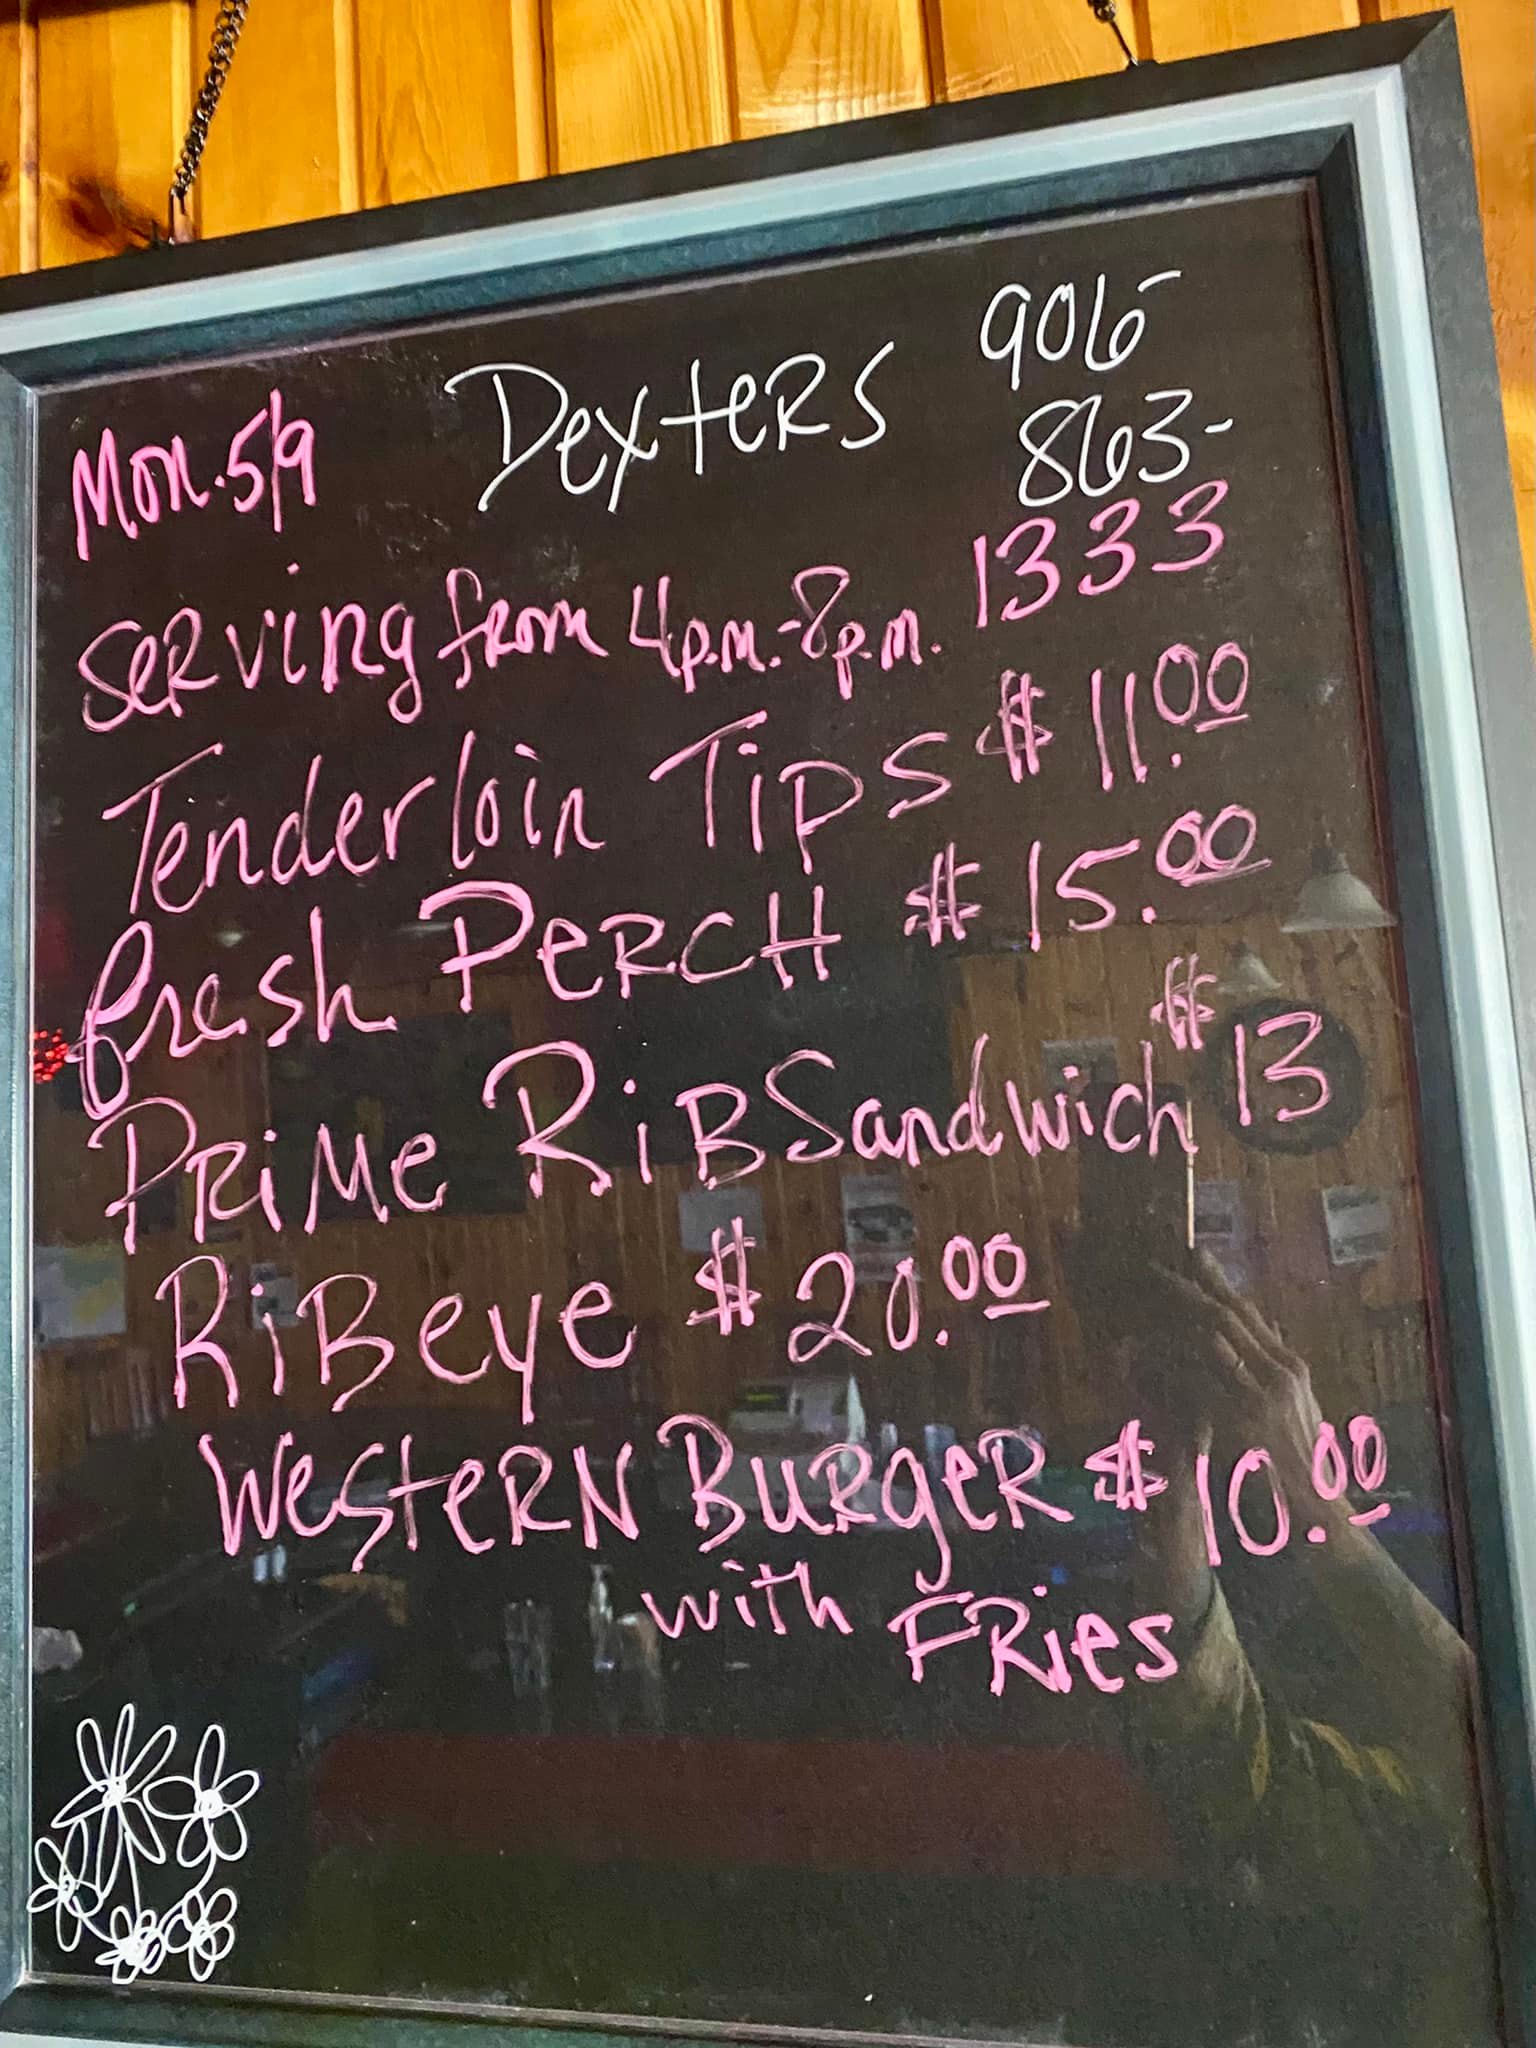 Mon. 5/9 Dexters 906-
863-
1333
Serving from 4p.m.-8p.m.
Tenderloin Tips $11.00
fresh Perch $15.00
Prime Rib Sandwich $13
RiBeye $20.00
Western Burger $10.00
with Fries